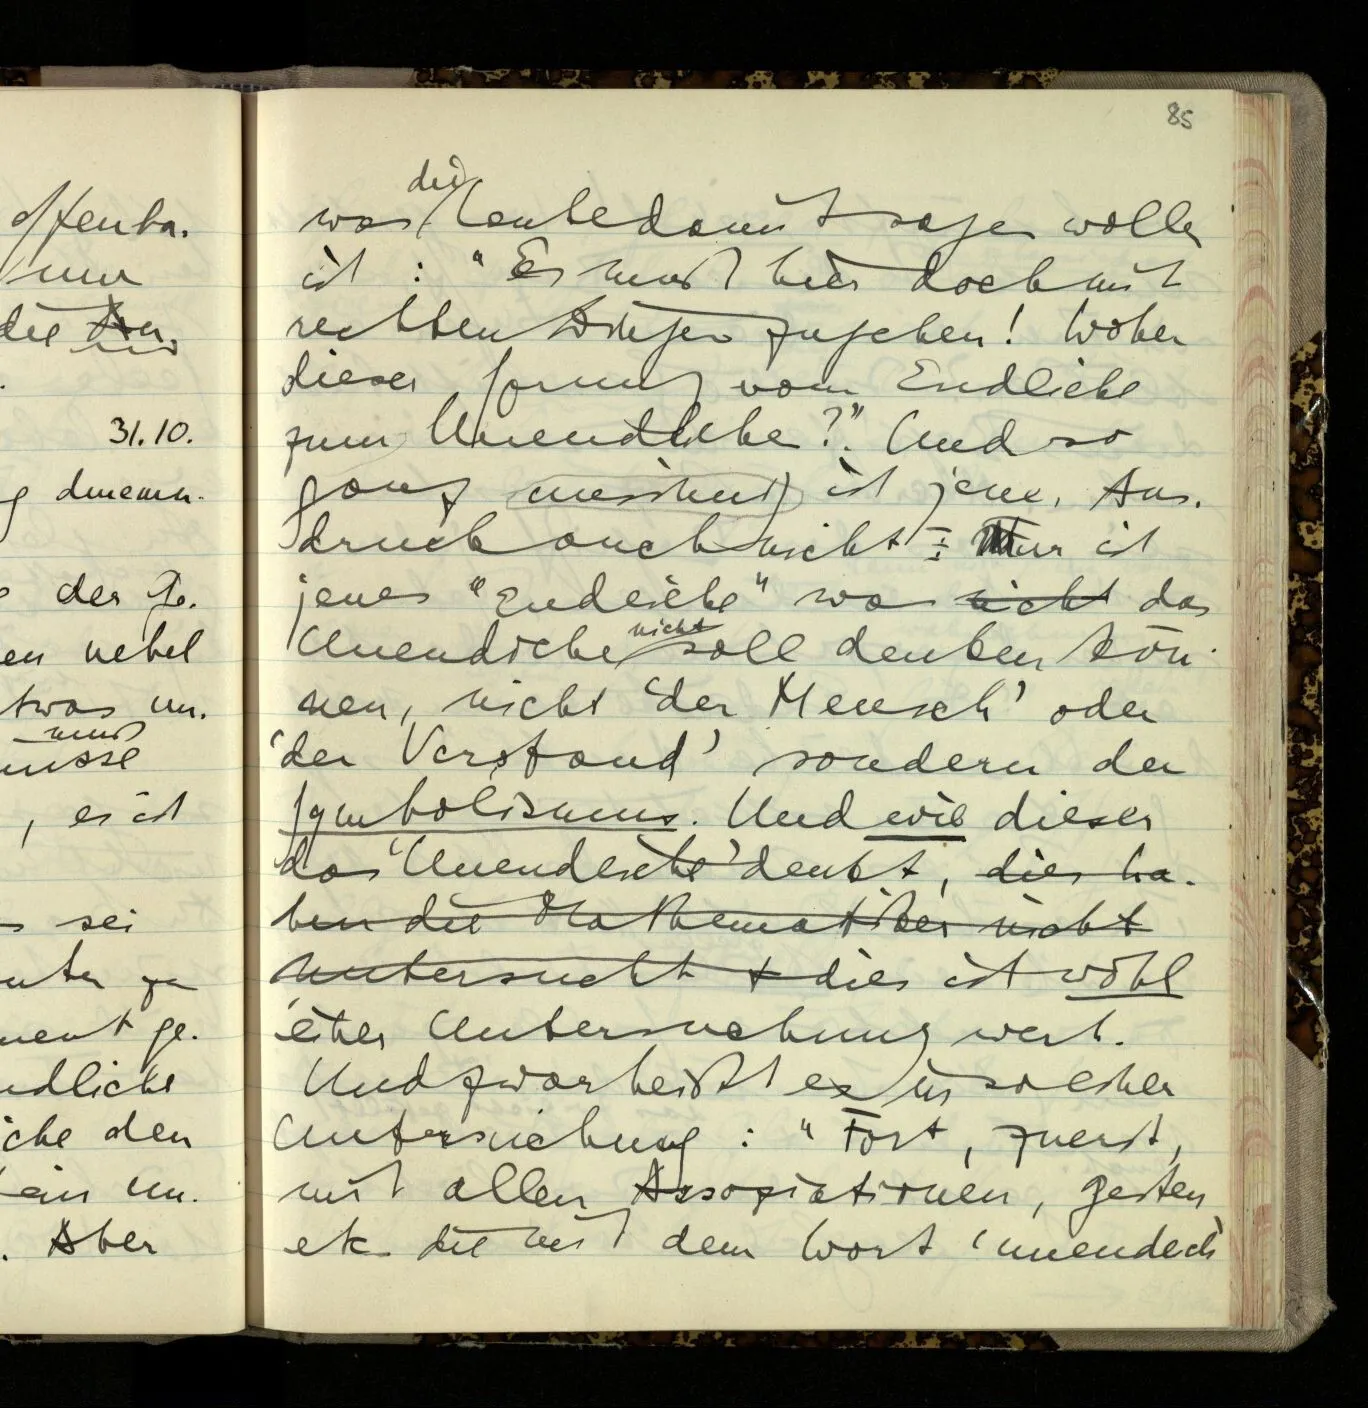 85
offenba-
nur
die
31.10.
der Ge-
en nebel
twas un-
muß
müsse
, es ist
sei
ment ge-
ndliche
iche den
ein un-
. Aber
die
was Leute damit sagen wollen
ist : "Es muß hier doch mit
rechten Dingen zugehen! Woher
dieser Sprung vom Endlichen
zum Unendlichen?". Und so
ganz unsinnig ist jene Aus-
druck auch nicht : Nur ist
jenes "Endliche" was nicht das
nicht
Unendliche soll denken kön-
nen, nicht 'der Mensch' oder
'der Verstand' sondern der
Symbolismus. Und wie dieser
das 'Unendliche' denkt, dies ha-
ben die Mathematiker nicht
untersucht + dies ist wohl
einer Untersuchung wert.
Und zwar heißt es in solcher
Untersuchung : "Fort, zuerst,
mit allen Assoziationen, Gesten
etc. die mit dem Wort 'unendlich